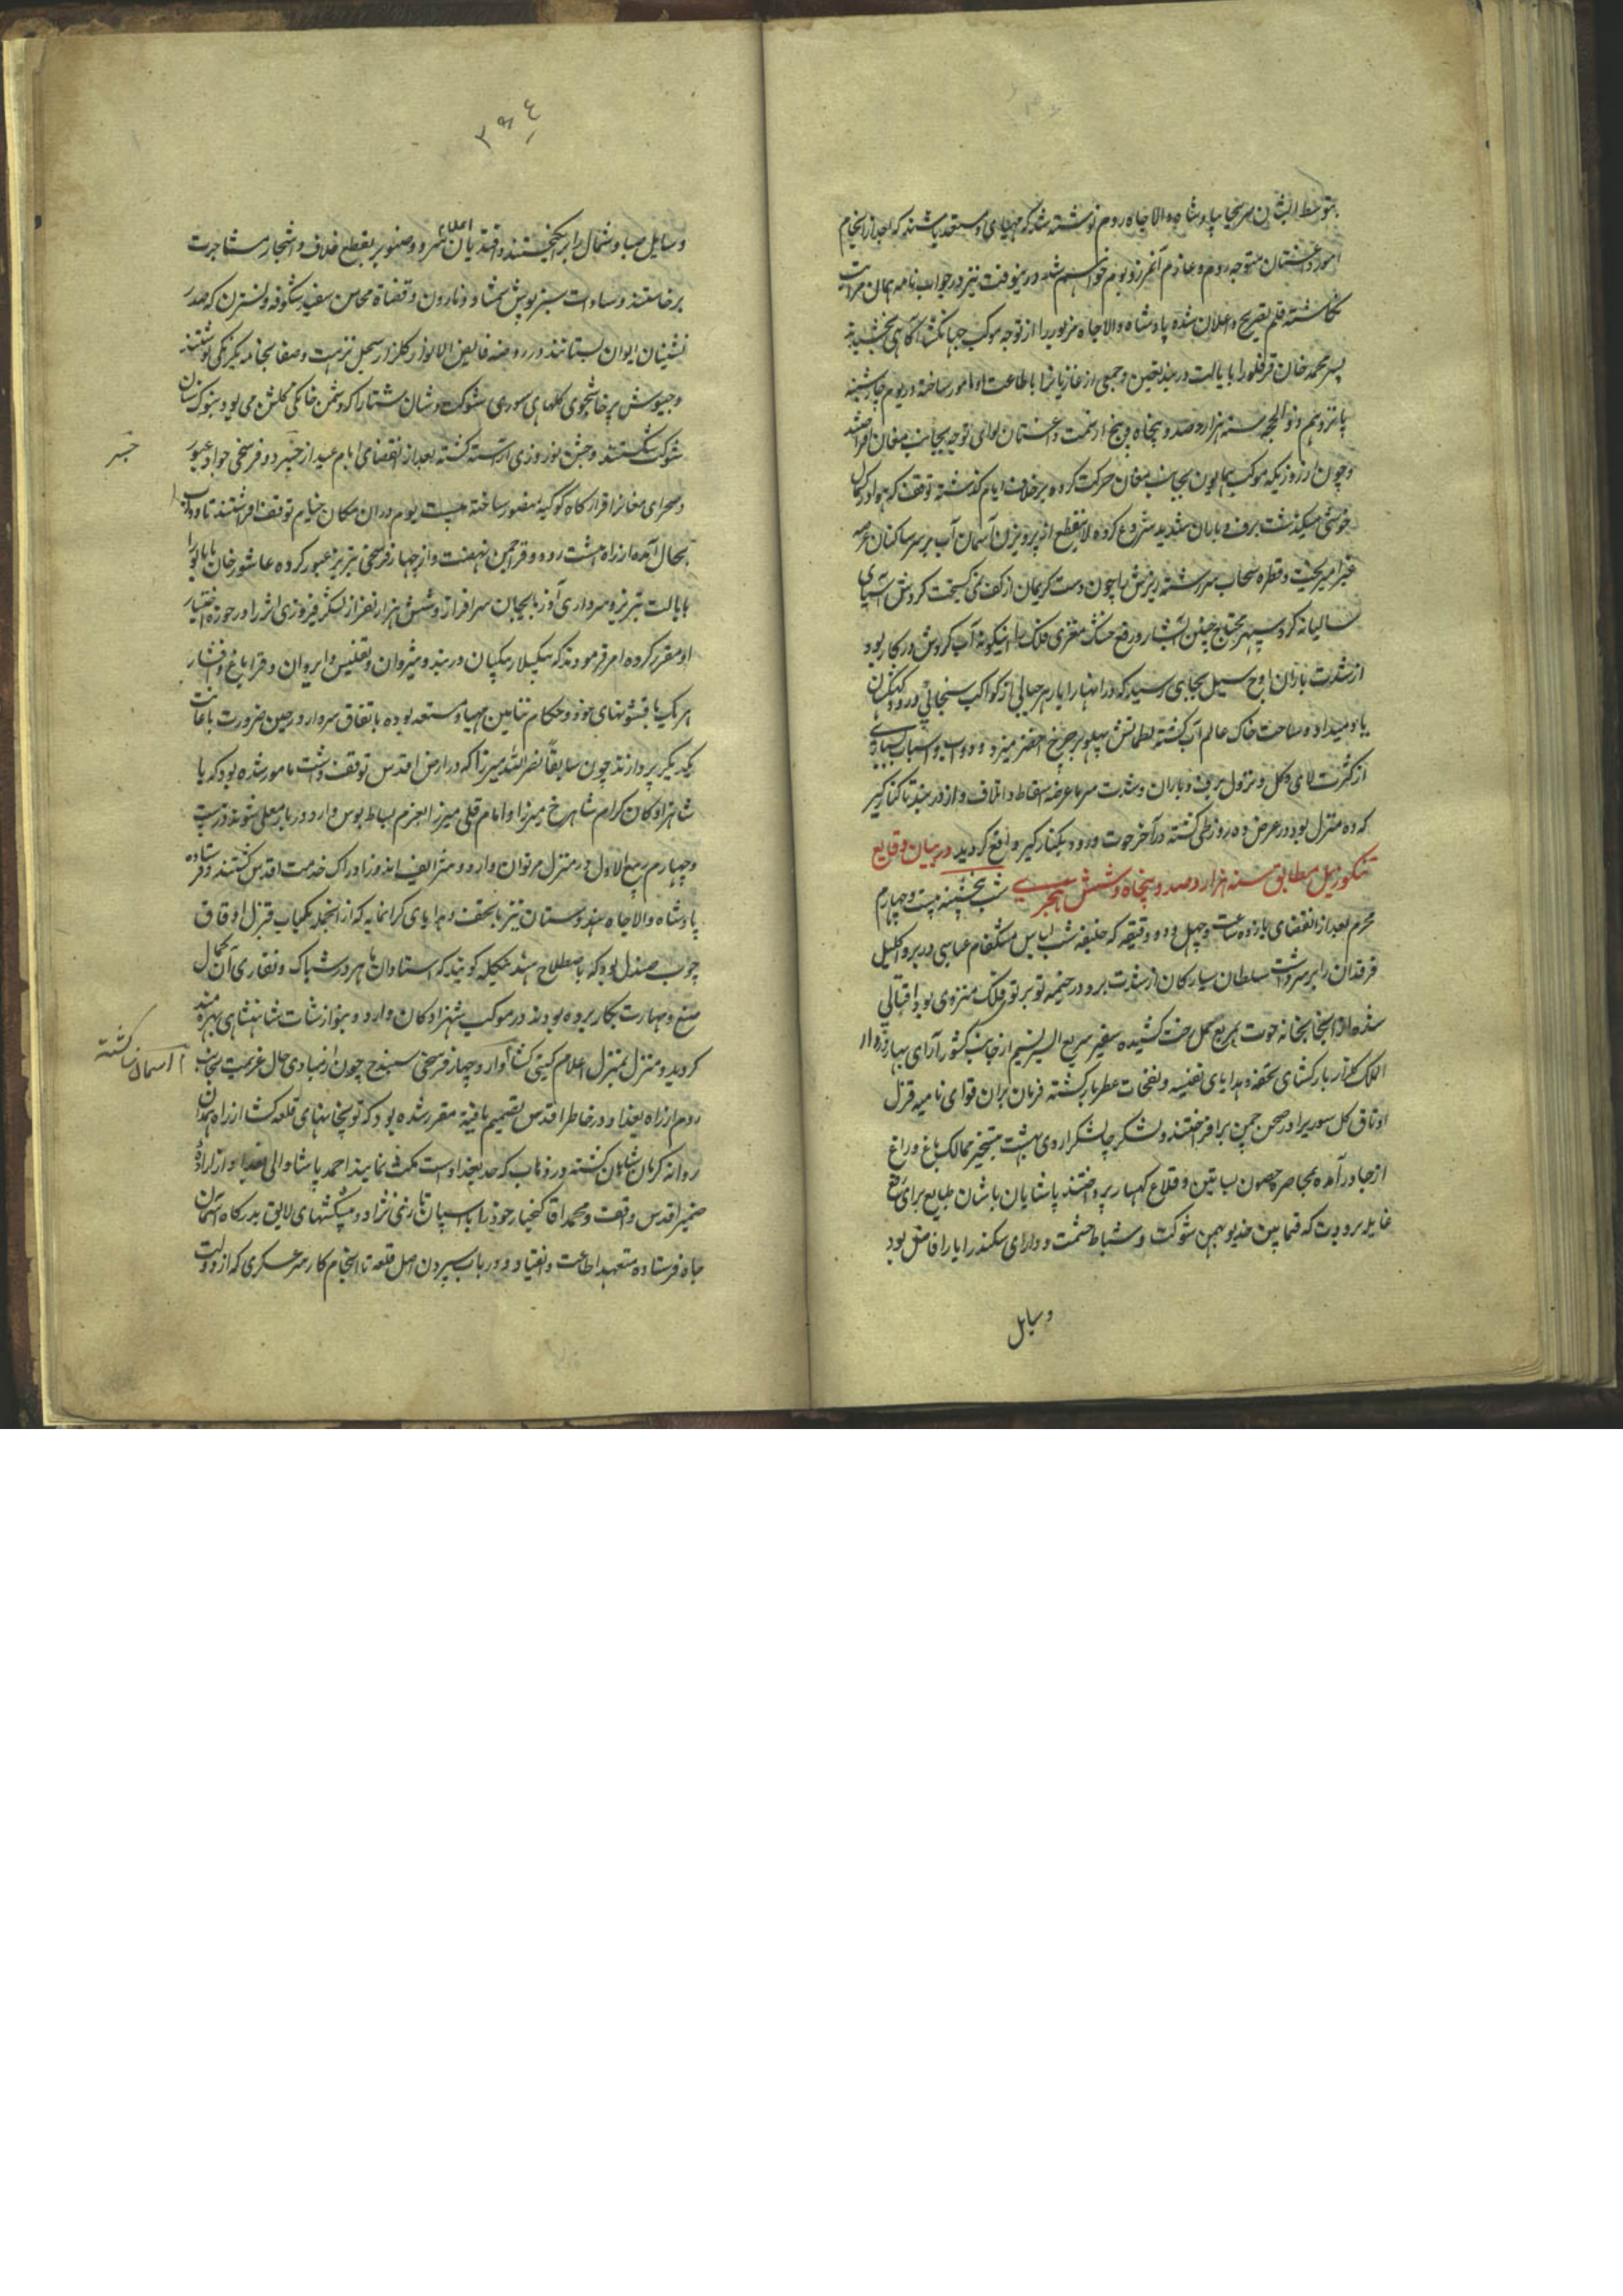 بتوسط ایشان سربخا بپادشاه والاجاه روم نوشته شد که مهیای و مستعد باشند که بعد از انجام
امور داغستان متوجه روم و عازم آنمرز و بوم خواهیم شد درینوقت نیز در جواب نامه همان مراتب
نگاشته قلم تصریح و اعلان شده پادشاه والاجاه مزبور را از توجه موکب جهانگشا آگاهی بخشیده
پسر محمد خان قرقلو را بایالت دربند تعیین و جمعی از غازیانرا باطاعت او مامور ساخته در یوم چارشنبه
پانزدهم ذو الحجه سنه هزار و صد و پنجاه و پنج از سمت داغستان لوای توجه بجانب مغان افراشتند
و چون از روزیکه موکب همایون بجانب مغان حرکت کرده بر خلاف ایام گذشته توقف که هوا در کمال
خوشی میگذشت برف و باران شدید شروع کرده لاینقطع از پرویزن آسمان آب بر سر ساکنان عرصه
غبرا میریخت و قطره سحاب سررشته ریزش را چون دست کریمان از کف نمی گسیخت گردش آسیای
سالیانه گردسپهر محتاج چنین آبشار و رفع خشک مغزی فلک را اینگونه آب گردش در کار بود
از شدت باران اوج سیل بجای رسید که در انهار
یاد میداد و ساحت خاک عالم آب گشته لطماتش پهلو بر چرخ اخضر میزد و دواب و اسباب بسیاری
از کثرت لای و گل و نزول برف و باران و شدت سرما عرضه اسقاط و اتلاف و از دربند تا کنار کر
که ده منزل بود در عرض ده روز طی گشته در آخر حوت ورود بکنار کر واقع گردید در بیان وقایع
تنکوزئیل مطابق سنه هزار و صد و پنجاه و شش هجری شب پنجشنبه بیست و چهارم
محرم بعد از انقضای یازده ساعت و چهل و دو دقیقه که خلیفه شب لباس مشکفام عباسی در بر و اکلیل
فرقدان را بر سر داشت سلطان سیارگان از شدت برد در خیمه تو بر توی فلک منزوی بود اقبالی
شده از آنجا بخانه حوت بربع حمل رخت کشیده سفیر سریع السیر نسیم از جانب کشور آرای بهار وارد
الکای گلزار بارکشای تحفه و هدایای نفیسه و نفحات عطر بار گشته فرمان بران قوای نامیه قزل
اوتاق گل سوریرا در صحن چمن برافراختند و لشکر چالشگر اردی بهشت بتسخیر ممالک باغ و راغ
از جا درآمده بمحاصره حصون بساتین و قلاع کهسار پرداختند پاشایان باشان طبایع برای رفع
غایله برودت که فیمابین خدیو بهمن شوکت و شباط حشمت و دارای سکندر رایارا فاش بود
وسایل
۳۹۴
وسایل صبا و شمال را برانگیختند و افندیان اعلاء سرو و صنوبر بقطع خلاف و اشجار مشاجرت
برخاستند و سادات سبز پوش شمشاد و نارون و قضاة محاسن سفید شکوفه و نسترن که صدر
نشینان ایوان بستانند در روضه فایض الانوار گلزار سجل نزهت و صفا بجامه یکرنگی نوشتند
و جیوش پرخاشجوی گلهای سوری شوکت و شان شتا را که دشمن خانگی گلشن می بود بنوک سنان
شوک شکستند و جشن نوروزی آراسته گشته بعد از انقضای ایام عید از جسر دو فرسخی جواد عبور
و صحرای مغانرا قرارگاه کوکبه منصور ساخته بیست یوم در ان مکان خیام توقف افراشتند تا دواب
بحال آمده از راه هشت رود و قراچمن نهضت و از چهار فرسخی تبریز عبور کرده عاشور خان پاپالورا
بایالت تبریز و سرداری آذربایجان سرافراز و شش هزار نفر از لشکر فیروزی اثر را در حوزه اختیار
او مقرر کرده امر فرمودند که بیگلربیگیان دربند و شیروان و تفلیس و ایروان و قراباغ و افشار
هر یک با قشونهای خود و حکام نتابین مهیا و مستعد بوده باتفاق سردار در حین ضرورت باعانت
یکدیگر پردازند چون سابقا نصر الله میرزا که در ارض اقدس توقف داشت مامور شده بود که با
شاهزادگان کرام شاهرخ میرزا و امام قلی میرزا بعزم بساط بوس وارد دربار معلی شوند در بیست
و چهارم ربیع الاول در منزل مریوان وارد و شرایف اندوز ادراک خدمت اقدس گشتند و فرستاده
پادشاه والاجاه هندوستان نیز با تحف و هدایای گرانمایه که از انجمله یکباب قزل اوتاق
چوب صندل بود که باصطلاح هند بنگله گویند که استادان ماهر در شباک و نقاری آن کمال
صنع و مهارت بکار برده بودند در موکب شهزادگان وارد و بنوازشات شاهنشاهی بهره مند
گردید و منزل بمنزل اعلام گیتی گشا وارد چهار فرسخی سنندج چون از مبادی حال عزیمت بجانب
روم از راه بغداد در خاطر اقدس تصمیم یافته مقرر شده بود که توپخانهای قلعه کشا از راه همدان
روانه کرمانشاهان گشته در ذهاب که حد بغداد است مکث نمایند احمد پاشا والی بغداد از اراده
ضمیر اقدس واقف و محمد اقا کهیار خود را با اسپان تازی نژاد و پیشکشهای لایق بدرگاه آسمان
جاه فرستاده متعهد اطاعت و انقیاد و در باب سپردن اصل قلعه تا انجام کار سر عسکری که از دولت
جسر
آسمان سا گشته